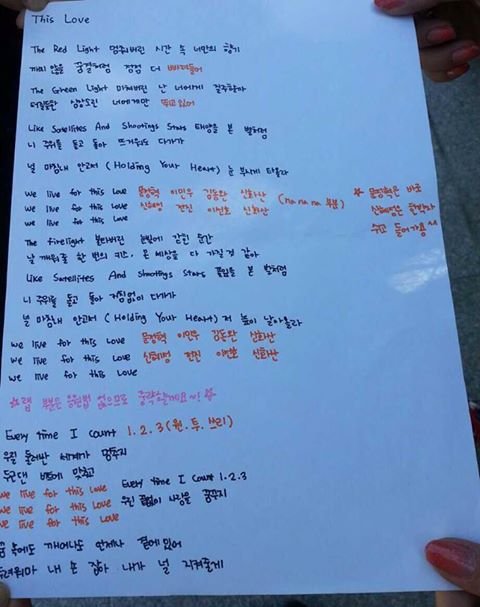 This Love
The Red Light 멈춰버린 시간 속 너만의 향기
끝이 없을 숨결처럼 점점 더 빠져들어
The Green Light 미쳐버린 난 너에게 질주할까
터질듯한 심장소린 너에게만 뛰고 있어
Like Satellites And Shootings Stars 태양을 본 별처럼
니 주위를 돌고 돌아 뜨거워도 다가가
널 마침내 안고서 (Holding Your Heart) 눈 부시게 타올라
we live for this love 문정혁 이민우 김동완 신화산 (na na na 부분)
we live for this love 신혜성 전진 이선호 신화산
we live for this love
☆ 문정혁은 바로
신혜성은 한박자
쉬고 들어가용^^
The firelight 불타버린 눈빛에 갇힌 순간
날 깨워줄 한 번의 키스, 온 세상을 다 가질 것 같아
Like Satellites And Shootings Stars 꽃잎을 본 벌처럼
니 주위를 돌고 돌아 거침없이 다가가
널 마침내 안고서 (Holding Your Heart) 저 높이 날아올라
we live for this love 문정혁 이민우 김동완 신화산
we live for this love 신혜성 전진 이선호 신화산
we live for this love
☆랩 부분은 응원법 없으므로 중략할게요~!☆
Every time I count 1.2.3 (원.투.쓰리)
우릴 둘러싼 세계가 멈추지
두근댄 비트에 맞추고
we live for this love Every time I Count 1.2.3
we live for this love 우린 끝없이 사랑을 꿈꾸지
we live for this love
꿈 속에도 깨어나도 언제나 곁에 있어
두려워마 내 손 잡아 내가 널 지켜줄게